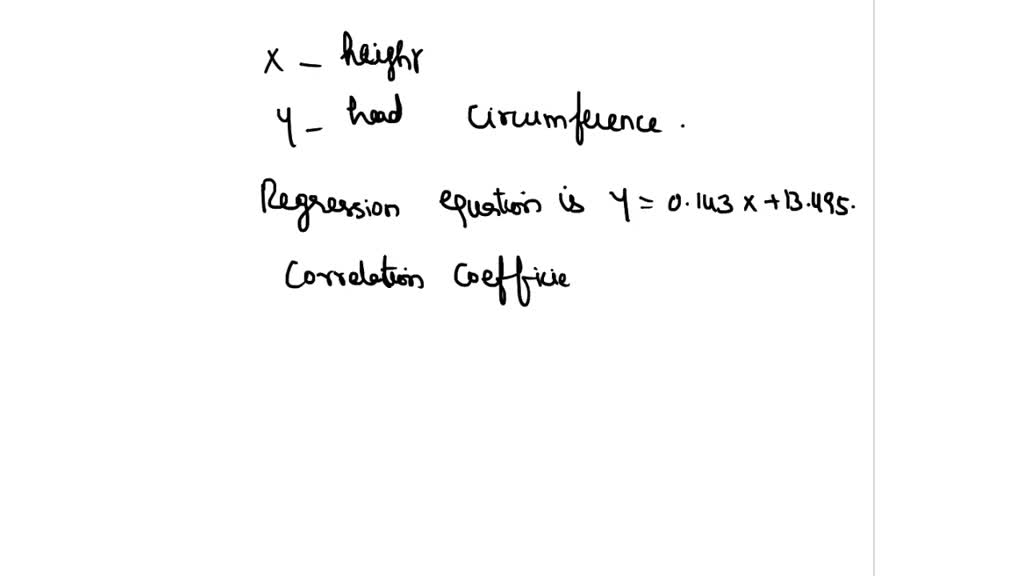 x - height
y - head circumference.
Regression equation is y = 0.143 x + 13.495.
Correlation coefficie